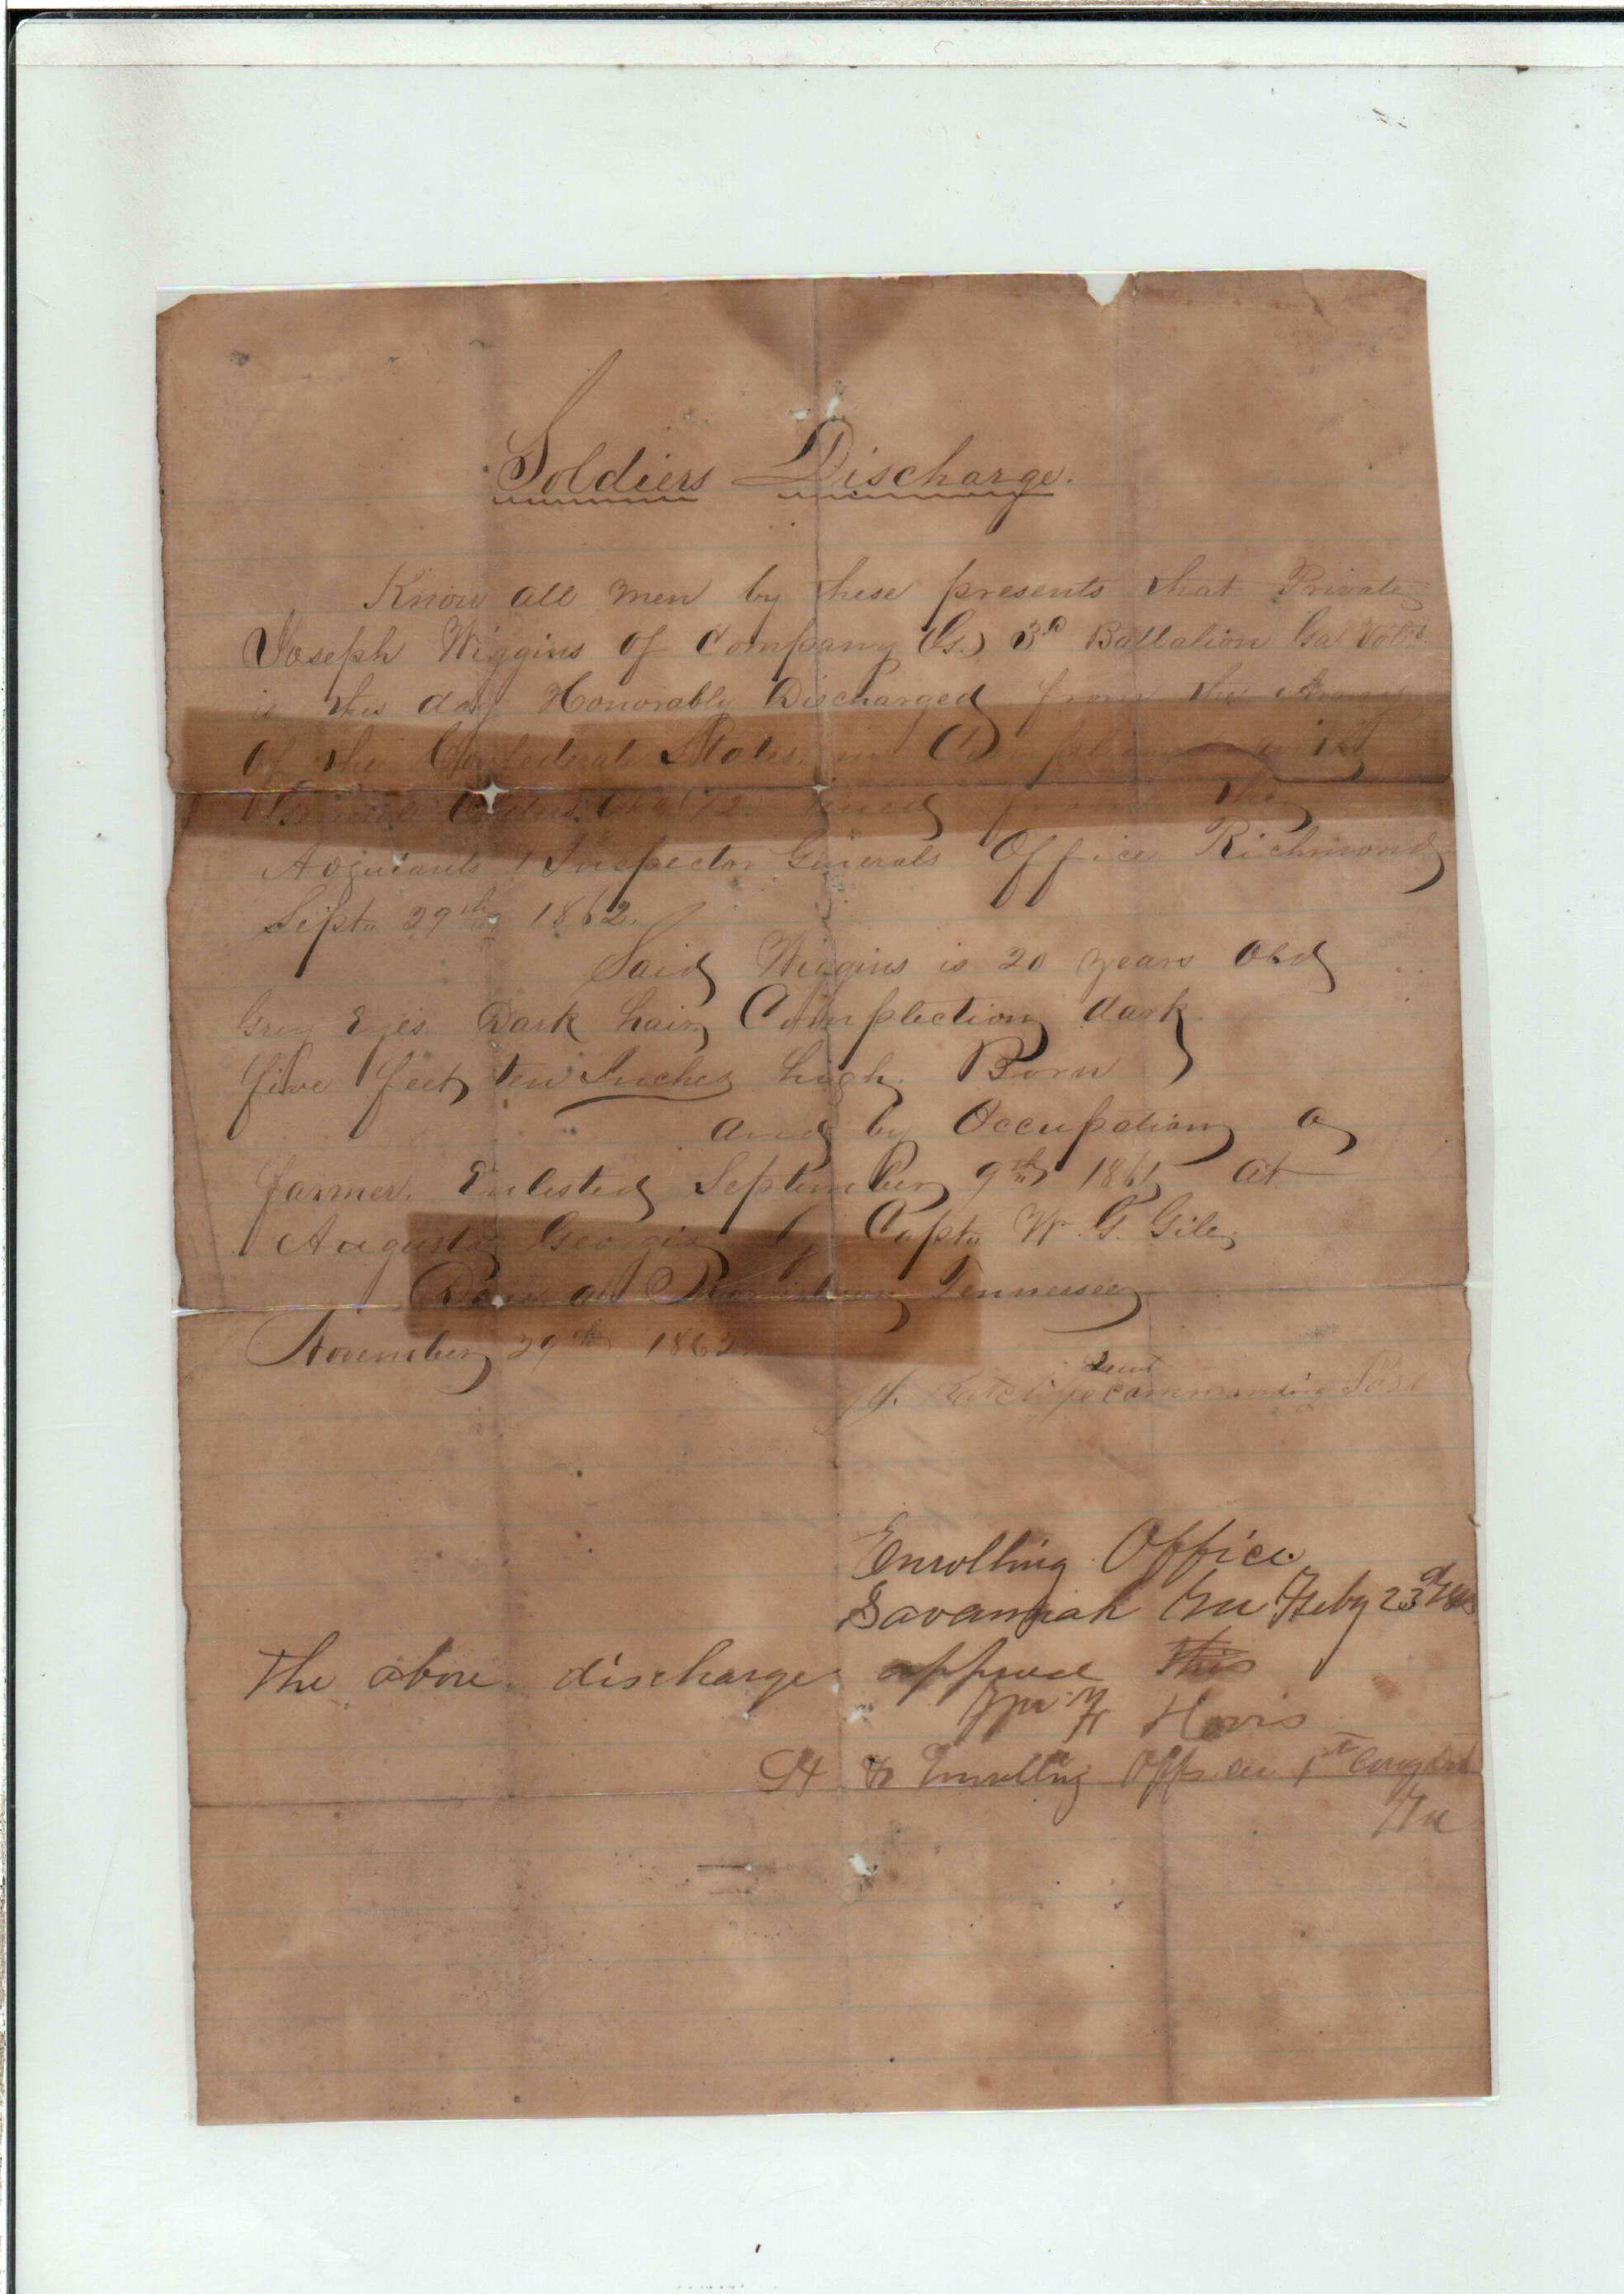 Soldiers Discharge.
Know all men by these presents that Private
Joseph Wiggins of Company (G.) 3rd Battalion Ga. Vols.
is this day Honorably Discharged from the Army
of the Confederate States, in
Orders No. 72. issued from the
Adjutants & Inspector Generals Office Richmond
Septr 29th 1862.
Said Wiggins is 20 years old
Grey Eyes Dark hair, Complection dark
five feet ten Inches high. Born
and by Occupation a
farmer. Enlisted September 9th 1861 at
Augusta Georgia by Captn W. G.
Done at Tennessee
November 29th 1862
Commanding Post
Enrolling Office
Savannah Ga Feby 23d
The above discharge approved this
Enrolling Officer 1st Cong Dist
Ga